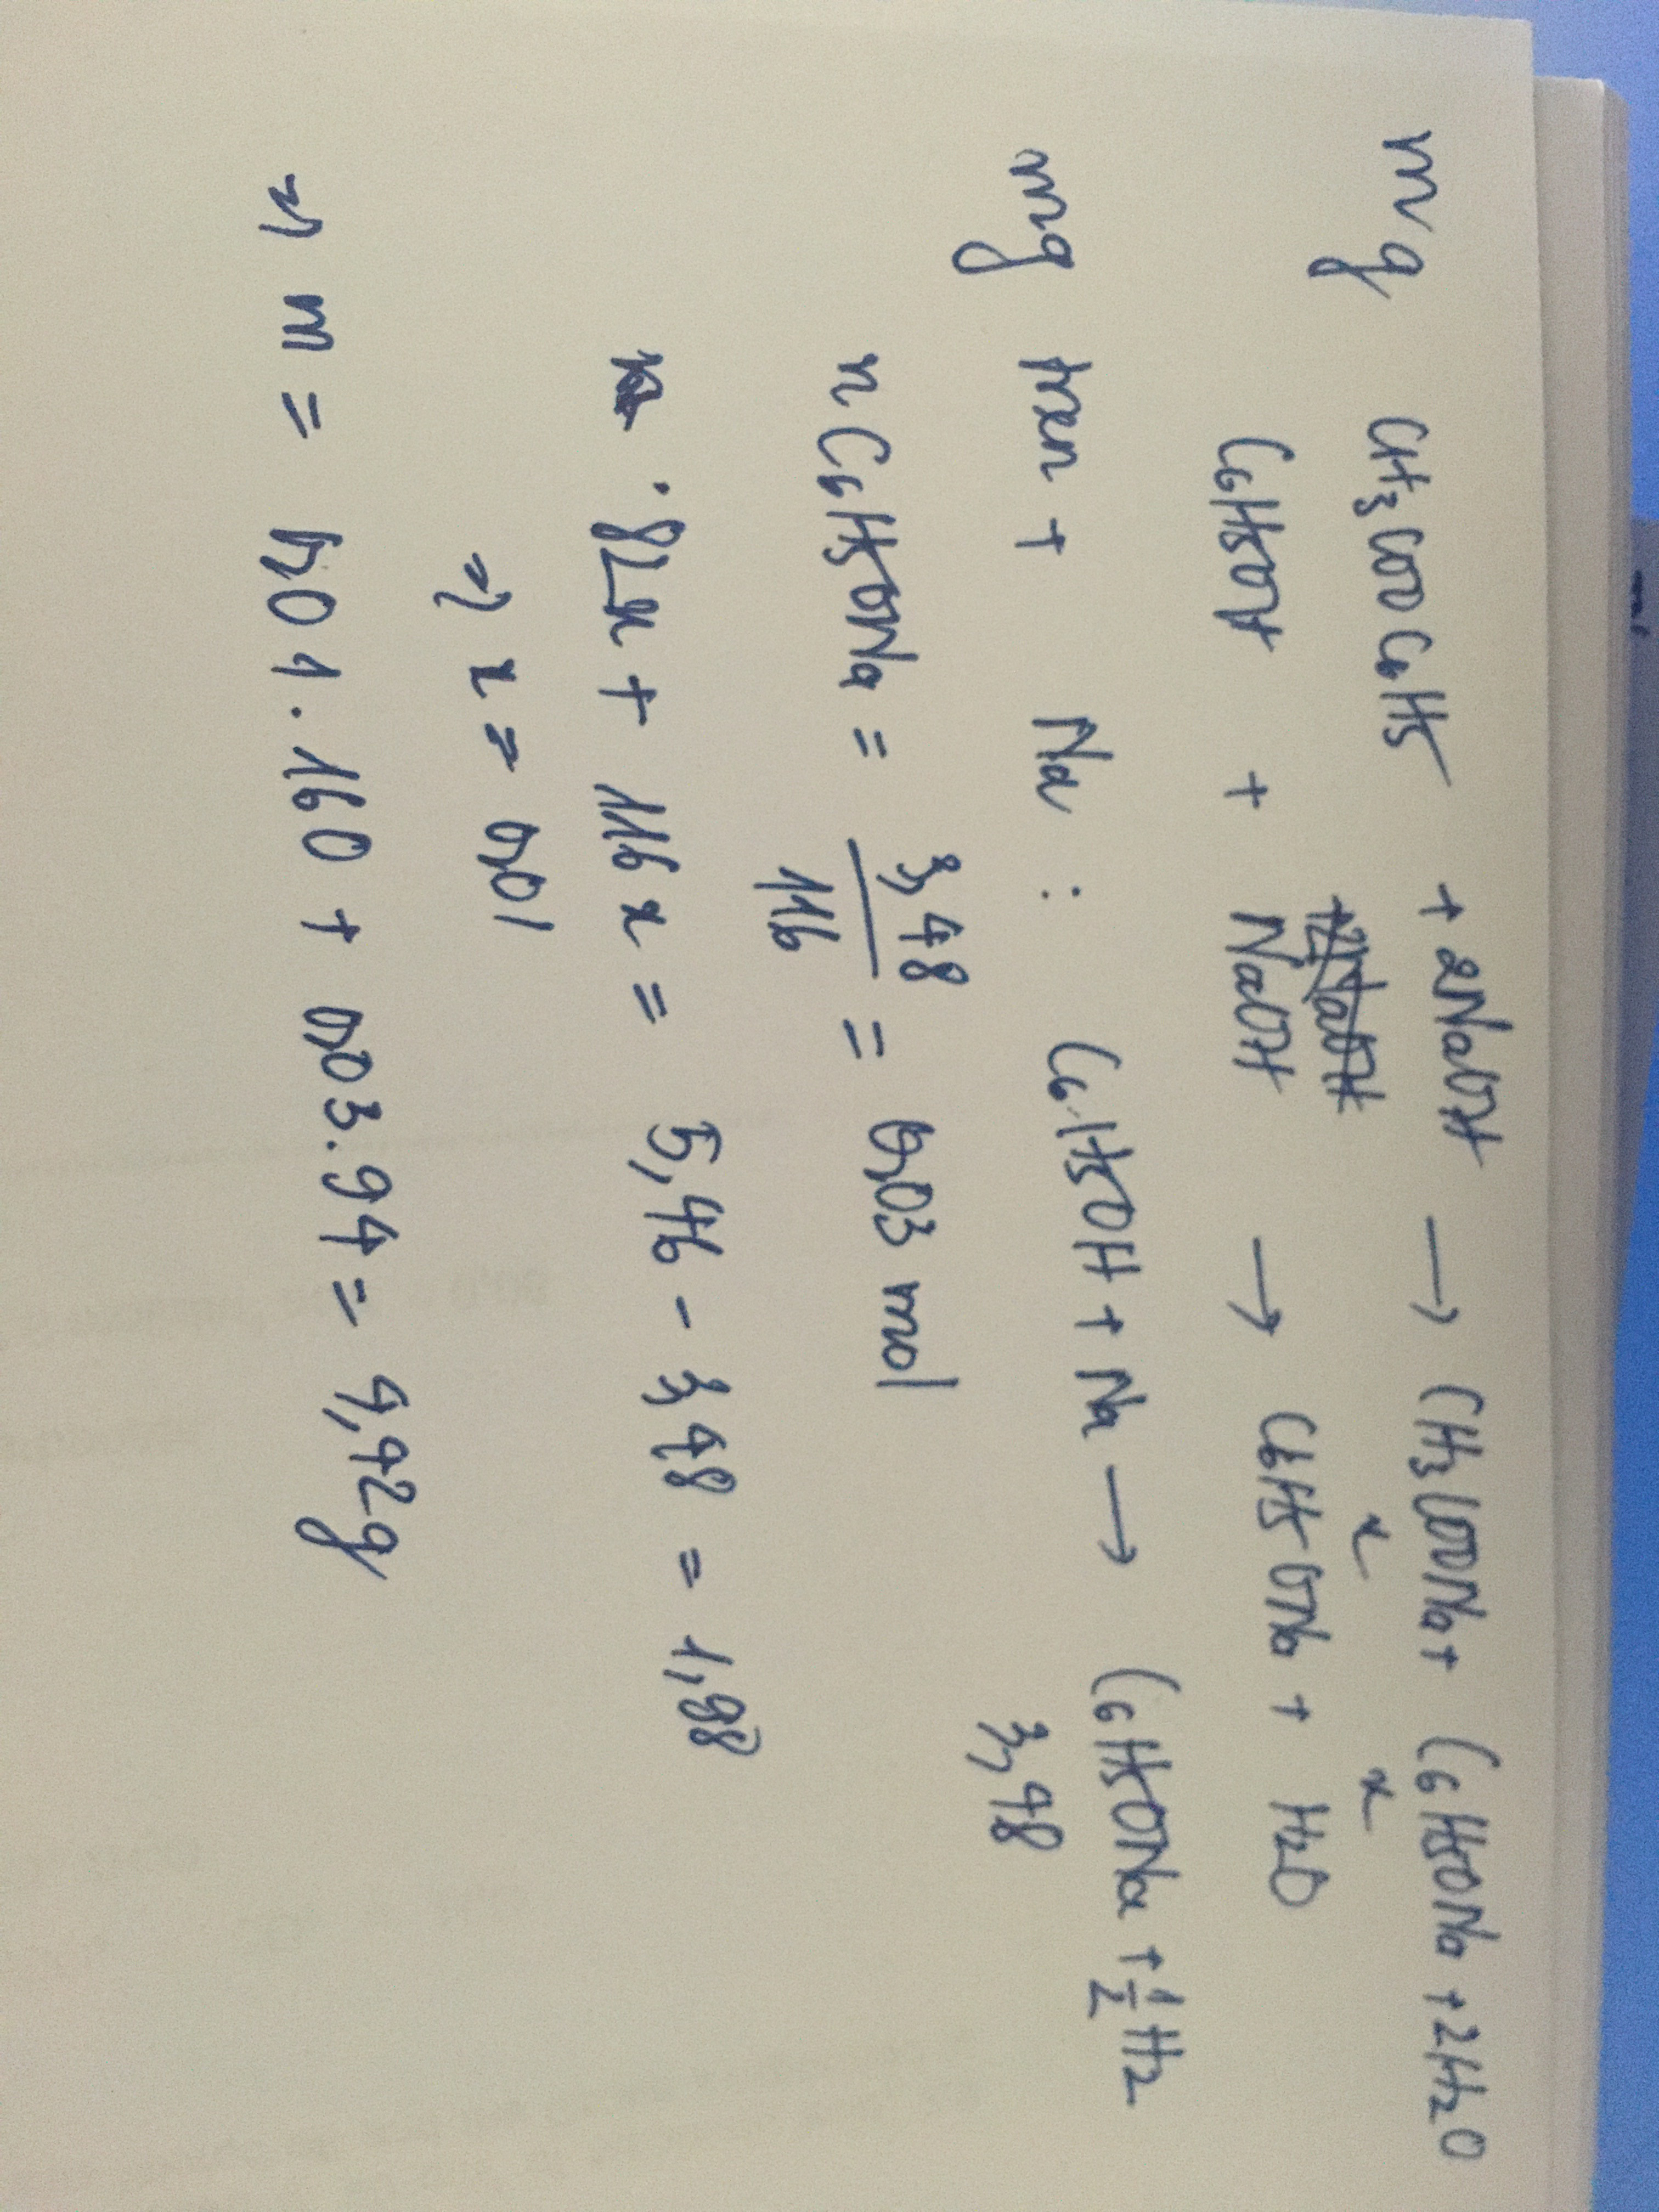 mg CH3COOC6H5 + 2NaOH → CH3COONa + C6H5ONa + 2H2O
x x
C6H5OH + NaOH → C6H5ONa + H2O
mg trên + Na : C6H5OH + Na → C6H5ONa + 1/2 H2
3,48
nC6H5ONa = 3,48/116 = 0,03 mol
. 82x + 116x = 5,46 - 3,48 = 1,98
=> x = 0,01
=> m = 0,01.160 + 0,03.94 = 4,42g